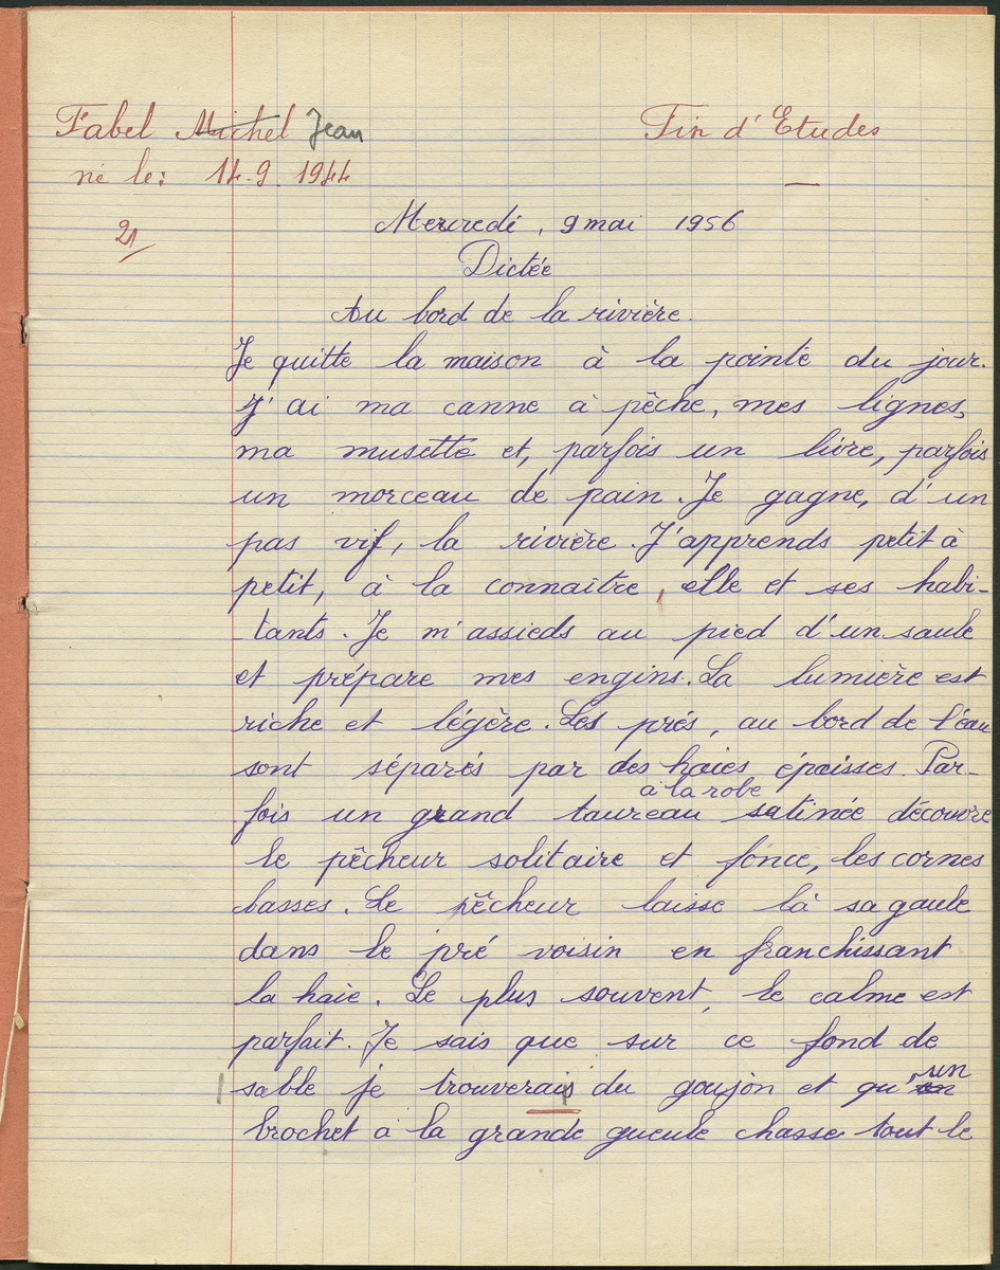 Fabel Michel Jean
Fin d'Etudes
né le: 14.9.1944
21/
Mercredi, 9 mai 1956
Dictée
Au bord de la rivière.
Je quitte la maison à la pointe du jour.
J'ai ma canne à pêche, mes lignes,
ma musette et, parfois un livre, parfois
un morceau de pain. Je gagne, d'un
pas vif, la rivière. J'apprends petit à
petit, à la connaître, elle et ses habi-
tants. Je m'assieds au pied d'un saule
et prépare mes engins. La lumière est
riche et légère. Les prés, au bord de l'eau
sont séparés par des haies épaisses. Par-
à la robe
fois un grand taureau satinée découvre
le pêcheur solitaire et fonce, les cornes
basses. Le pêcheur laisse là sa gaule
dans le pré voisin en franchissant
la haie. Le plus souvent, le calme est
parfait. Je sais que sur ce fond de
un
sable je trouverais du goujon et qu'
brochet à la grande gueule chasse tout le